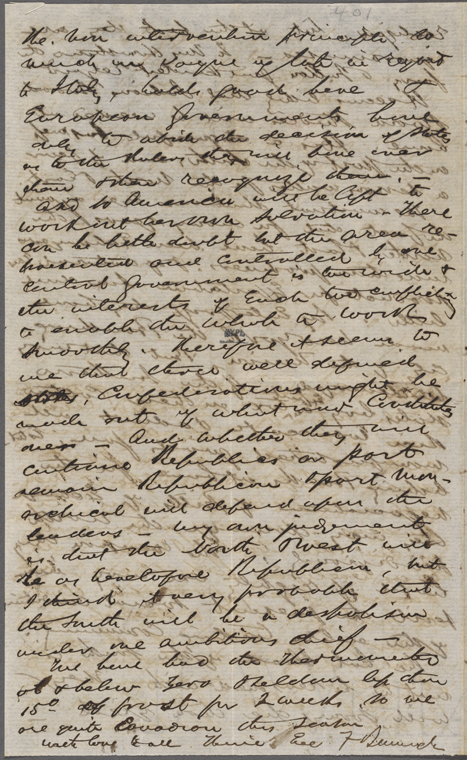 401
The non intervention principle to
which our League uphold in regard
to Italy holds good here &
European Governments have
only to abide the decision of States
as to the Rulers they will have over
them & then recognize them. —
And so America will be left to
work out her own Salvation — There
can be little doubt but the area re-
presented and controlled by one
Central Government is too wide &
the interests of Each too conflicting
to enable the whole to work
smoothly. Therefore it seems to
me that three well defined
Confederations might be
made out of what now Constitutes
— And whether they will
continue Republics or part
remain Republican & part Mon-
archical will depend upon the
leaders — My own judgement
is that the North & West will
be as heretofore Republican, but
I think it very probable that
the South will be a despotism
under one ambitious chief —
We have had the Thermometer
at & below Zero & seldom less than
15° of frost for 2 weeks. So we
are quite Canadian this season
with love to all Thine Ever F